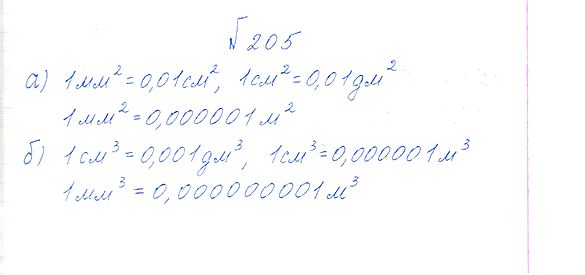 № 205
а) 1 мм² = 0,01 см², 1 см² = 0,01 дм²
1 мм² = 0,000001 м²
б) 1 см³ = 0,001 дм³, 1 см³ = 0,000001 м³
1 мм³ = 0,000000001 м³